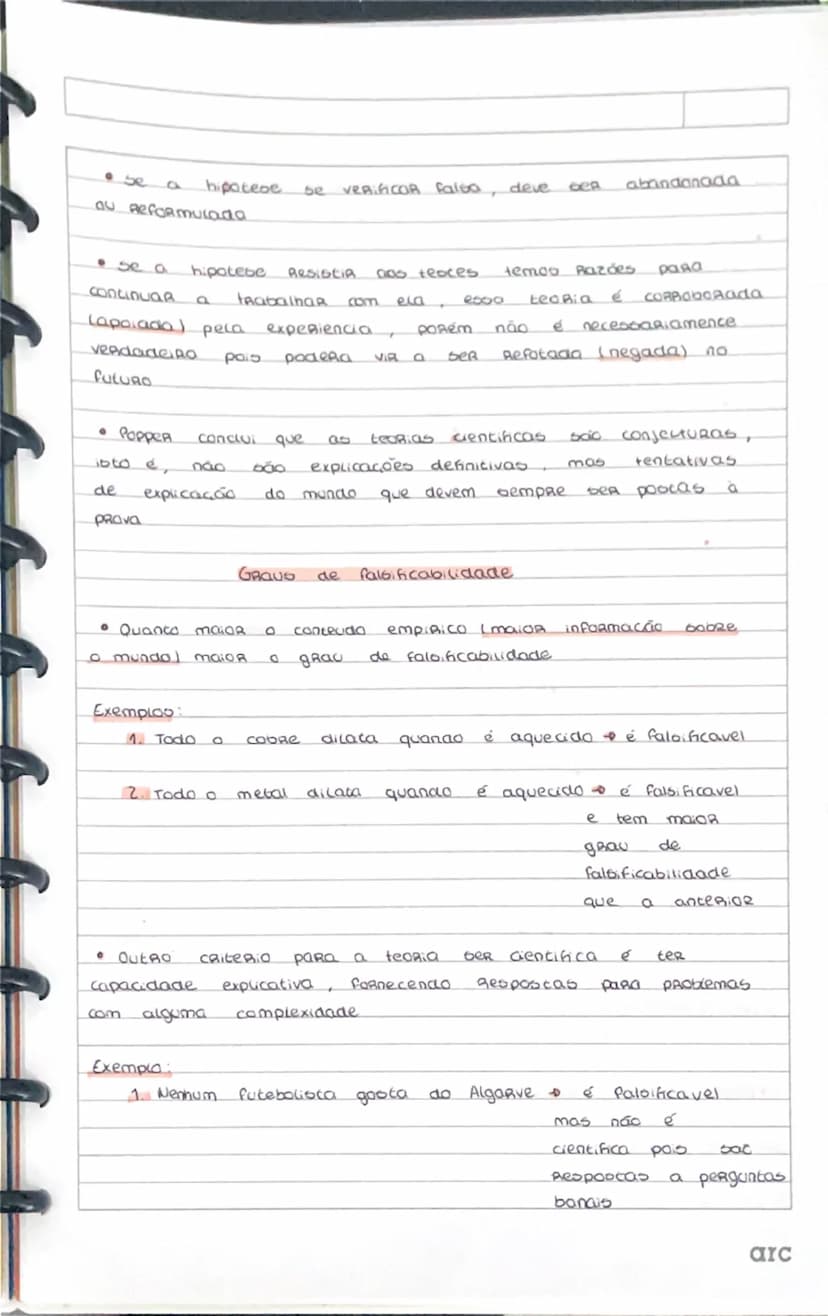 • Se a hipotese se verificar falsa, deve ser abandonada
ou reformulada
• Se a hipotese resistir aos testes temos razões para
continuar a trabalhar com ela, essa teoria é corroborada
(apoiada) pela experiencia, porém não é necessariamente
verdadeira pois podera vir a ser refotada (negada) no
futuro
• Popper conclui que as teorias cientificas são conjeturas,
isto é, não são explicações definitivas, mas tentativas
de explicação do mundo que devem sempre ser postas à
prova
Graus de falsificabilidade
• Quanto maior o conteudo empirico (maior informação sobre
o mundo) maior o grau de falsificabilidade
Exemplos:
1. Todo o cobre dilata quando é aquecido → é falsificavel
2. Todo o metal dilata quando é aquecido → é falsificavel
e tem maior
grau de
falsificabilidade
que a anterior
• Outro criterio para a teoria ser cientifica é ter
capacidade explicativa, fornecendo respostas para problemas
com alguma complexidade
Exemplo:
1. Nenhum futebolista gosta do Algarve → é falsificavel
mas não é
cientifica pois sao
respostas a perguntas
banais
arc